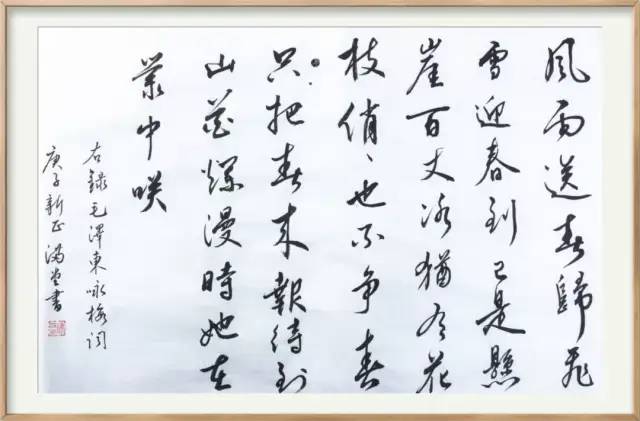 風雨送春歸飛
雪迎春到已是懸
崖百丈冰猶有花
枝俏、也不争春
只把春來報待到
山花爛漫時她在
叢中咲
右録毛澤東咏梅詞
庚子新正满堂書